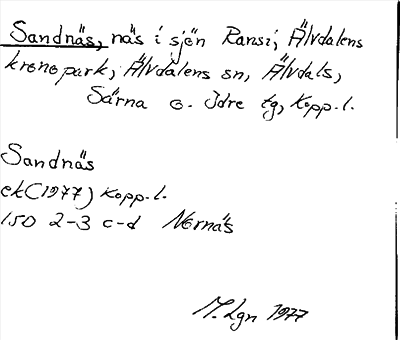 Sandnäs, näs i sjön Ransi, Älvdalens
kronopark, Älvdalens sn, Älvdals,
Särna o. Idre tg, Kopp.l.
Sandnäs
ek (1977) Kopp.l.
150 2-3 c-d Nornäs
M.Lgn 1977